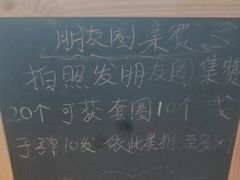 朋友圈集赞
拍照发朋友圈集赞
20个可获套圈10个或
子弹10发 依此类推 至多